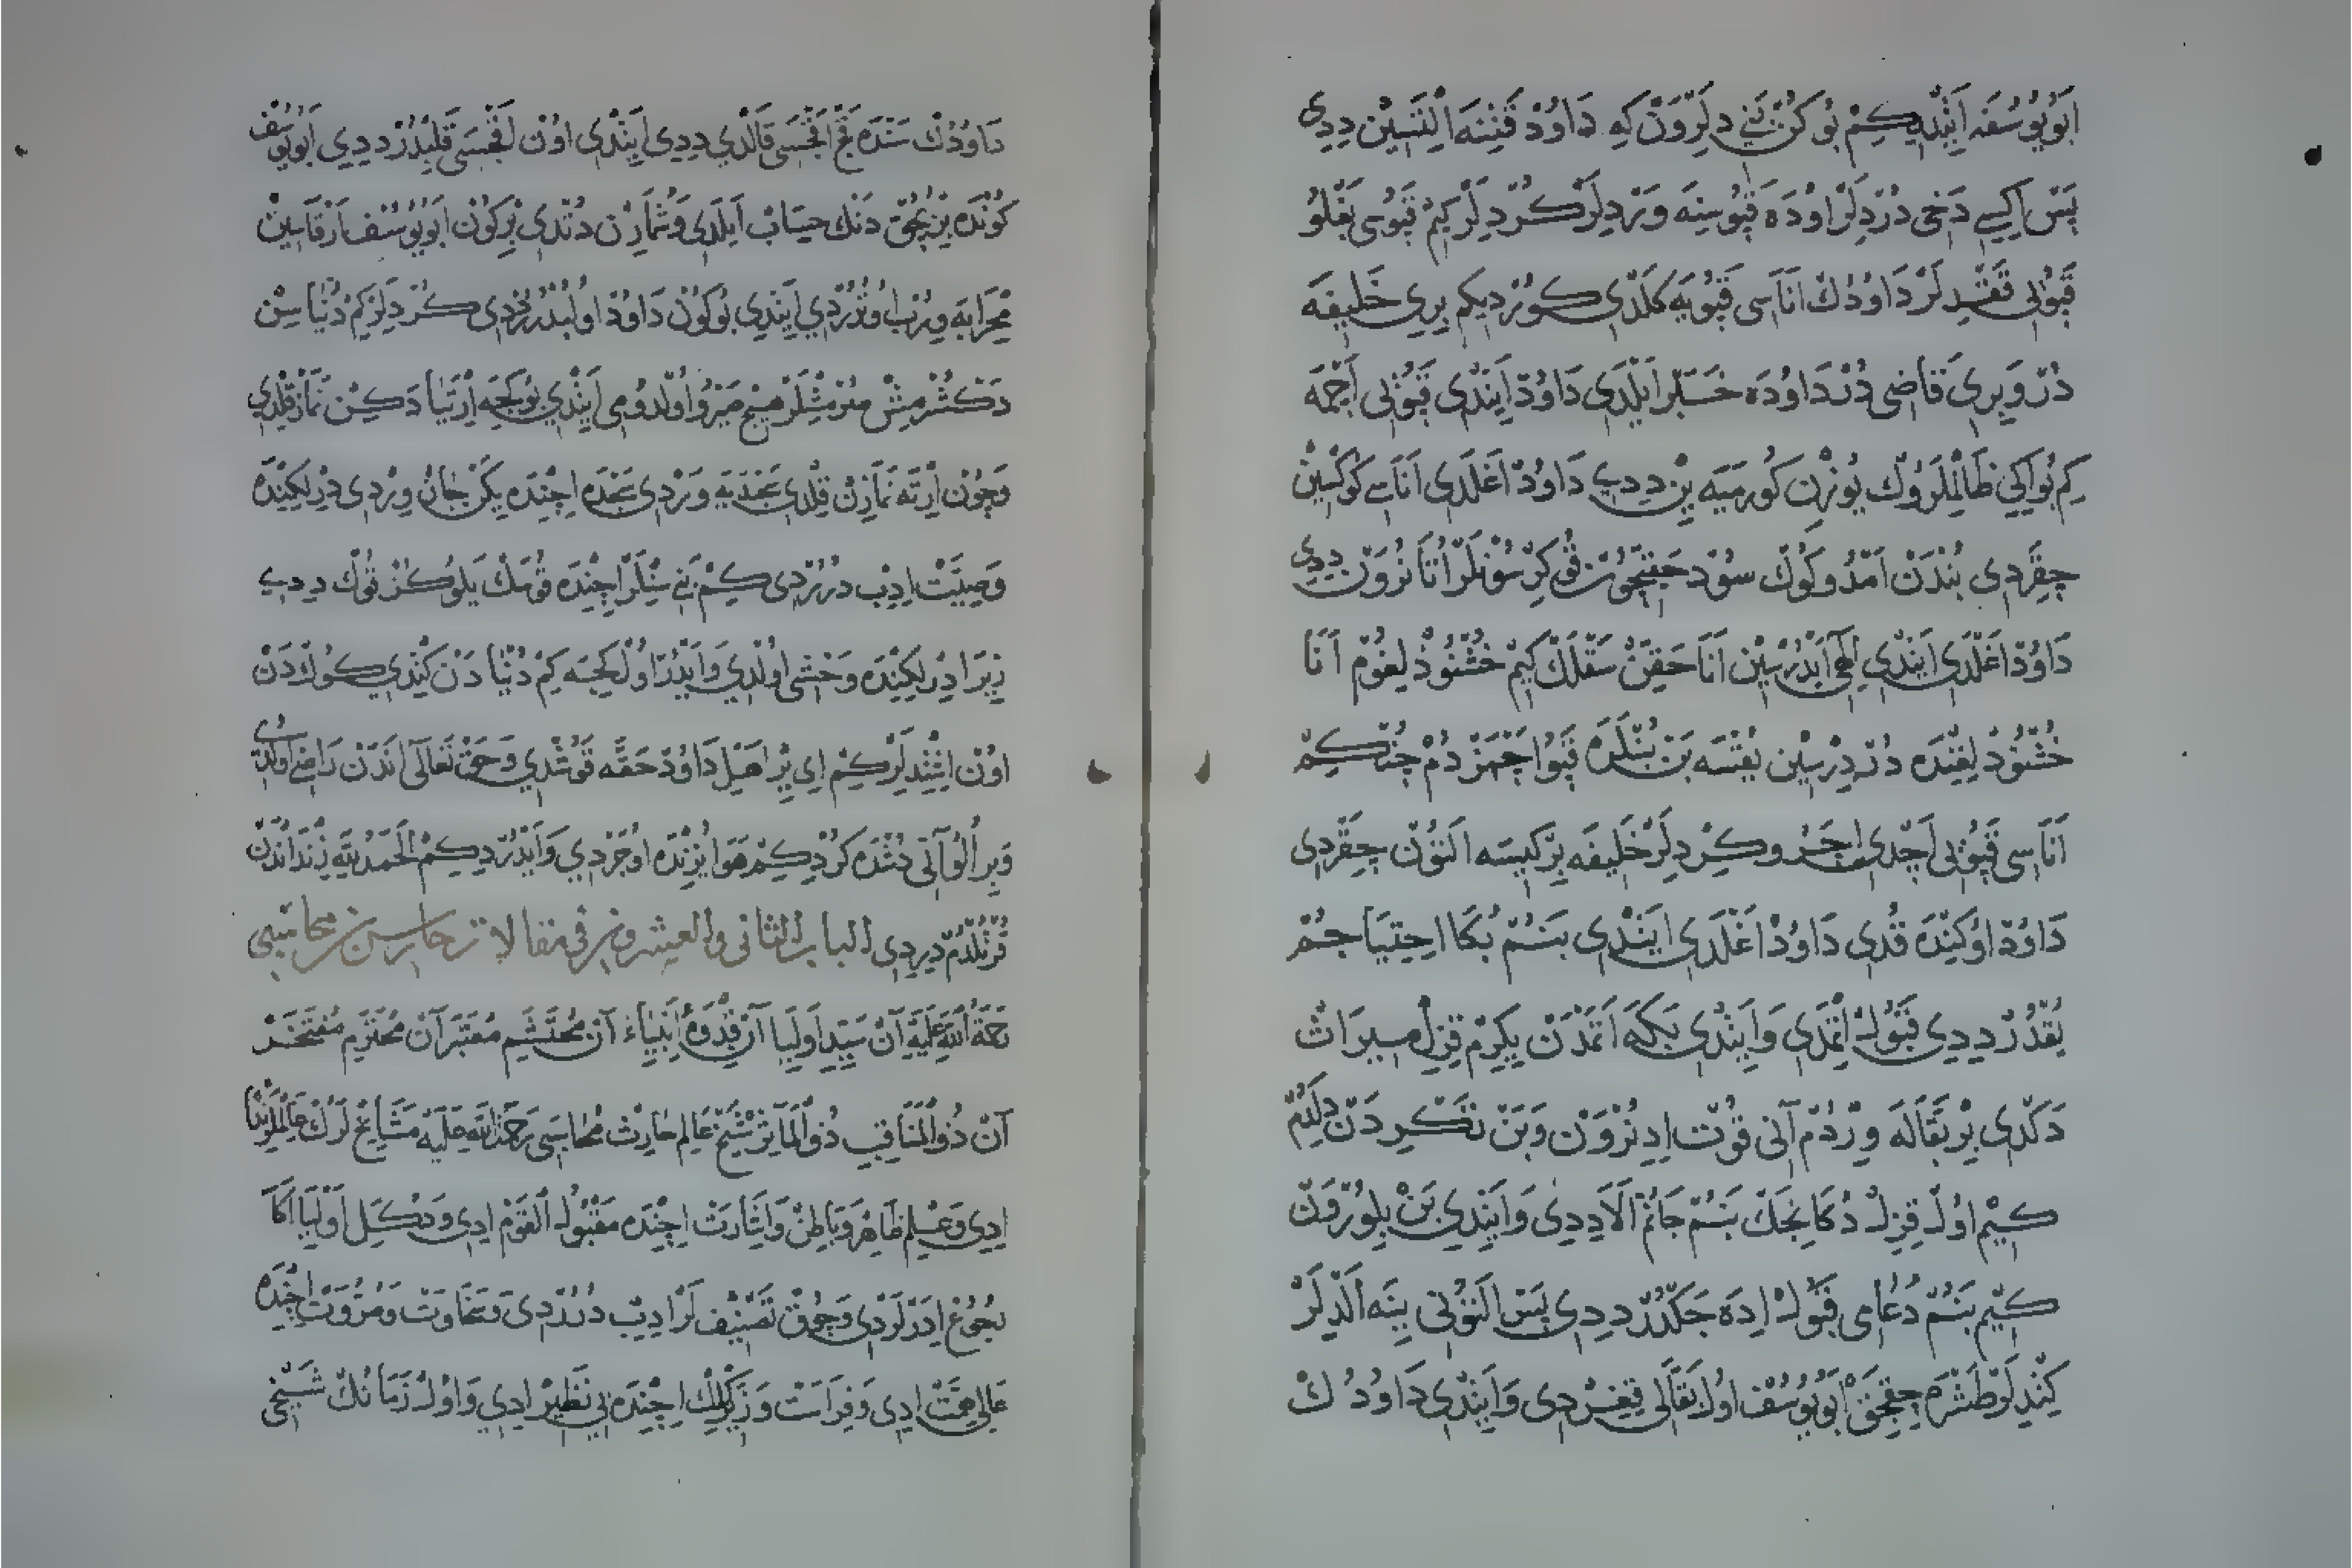 اَبُو يُوسُفَه اَيْتْدِيكِمْ بُو كُنْ بَنِي دِلَرْوَنْ كِه دَاوُدْ قَتِنَه اَلْتَسِينْ دِدِى
پَسْ اِكِيسِي دَخِى دُرْدِلَرْ دَاوُدَه قَپُوسِنَه وَرْدِلَرْ كُرْدِلَرْ كِمْ قَپُوسِى بَغْلُو
قَپُوىِ قَقْدِلَرْ دَاوُدُكْ اَنَاسِى قَپُويَه كَلْدِى كُورْدِيكِمْ بِرِى خَلِيفَه
دُرْ وَبِرِى قَاضِى دُرْ دَاوُدَه خَبَرْ اَيْلَدِى دَاوُدْ اَيْتْدِى قَپُوىِ اَچْمَه
كِمْ بُو اِكِي ظَالِمْلَرُوكْ يُوزِنْ كُورْمَيَه بِنْ دِدِي دَاوُدْ اَغْلَدِى اَنَاسِي كُوكْسِينْ
چِقَرْدِى بُنْدَنْ اَمْدُوكُوكْ سُودْ حَقِيچُونْ قُو كِرْسُونْلَرْ اُتَانُرْوَنْ دِدِى
دَاوُدْ اَغْلَدِى اَيْتْدِى اِلٰهِى اَيْدُرْسِينْ اَنَا حَقِنْ سَقْلَكْ كِيمْ خُشْنُوذْلِغُومْ اَنَا
خُشْنُوذْلِغِنْدَه دُرْ دِرْسِينْ يُقْسَه بَنْ بُنْلَرَه قَپُو اَچْمَزْدُمْ چُنْكِمْ
اَنَاسِى قَپُوىِ اَچْدِى اِچَرُو كِرْدِلَرْ خَلِيفَه بِرْ كِيسَه اَلْتُونْ چِقَرْدِى
دَاوُدْ اُوكِنْدَه قُدِى دَاوُدْ اَغْلَدِى اَيْتْدِى بَنُمْ بُكَا اِحْتِيَاجُمْ
يُقْدُرْ دِدِى قَبُولْ اَتْمَدِى وَاَيْتْدِى بَكَه اَتَمْدَنْ يِكِرْمِ قِزِلْ مِيرَاثْ
دَكْدِى بِرْ بَقَّالَه وِرْدُمْ آنِى قُوتْ اِدِنُرْوَنْ وَبَنْ تَكْرِدَنْ دِلَدُمْ
كِيمْ اُولْ قِزِلْ دُكَانِجَكْ بَنُمْ جَانُمْ اَلَا دِدِى وَاَيْتْدِى بَنْ بِلُورْوَنْ
كِيمْ بَنُمْ دُعَامِى قَبُولْ اِدَه جَكْدُرْ دِدِى پَسْ اَلْتُونِى يِنَه اَلْدِلَرْ
كِتْدِلَرْ طَشْرَه چِقِجَقْ اَبُو يُوسُفْ اُولْ بَقَّالِى قِغِرْدِى وَاَيْتْدِى دَاوُدُكْ
دَاوُدُكْ سَنْدَه قَچْ اَقْچَسِى قَالْدِي دِدِى اَيْتْدِى اُونْ اَقْچَسِى قَلْبْدُرْ دِدِي اَبُو يُوسُفْ
كُونْدَه بِرْ بُچُقْ دَنْكْ حِسَابْ اَيْلَدِى وَشُمَارِنْ دُتْدِى بِرْكُونْ اَبُو يُوسُفْ اَرْقَاسِينْ
مِحْرَابَه وِرُبْ اُوتُرُرْدِي اَيْتْدِى بُوكُونْ دَاوُدْ اُولُبْدُرُرْ دِى كُرْدِلَرْ كِمْ دُنْيَاسِنْ
دَكْشُرْمِشْ صُرْمِشْلَرْ هِيچْ صَيْرُو اُولْدُومِى اَيْتْدِي بُو كَجَه اِرْتَيَا دَكِنْ نَمَازْ قِلْدِى
وَچُونْ اِرْتَه نَمَازِنْ قِلْدِى سَجْدَيَه وَرْدِى سَجْدَه اِچِنْدَه يِكَنْ جَانْ وِرْدِى دِرْلِكِنْدَه
وَصِيَّتْ اِدِبْ دُرُرْدِى كِمْ بَنِي سِنْلَرْ اِچِنْدَه قُومَكْ يَلُوكُزْ قُوكْ دِدِي
زِيرَا دِرْلِكِنْدَه وَحْشِى اُولْدِي وَاَيْدُرْ اُولْ كِجَه كِمْ دُنْيَادَنْ كِتْدِي كُوكْدَنْ
اُونْ اِشِتْدِلَرْ كِمْ اِى يِرْ اَهْلِ دَاوُدْ حَقَّه قَوُشْدِي وَحَقْ تَعَالَى اَنْدَنْ رَاضِى اُولْدِى
وَبِرْ اُلُو آنِى دُشْدَه كُرْدِكِمْ هَوَا يُزِنْدَه اُوچَرْدِي وَاَيْدُرْدِكِمْ اَلْحَمْدُ لِلّٰهِ زِنْدَانْدَنْ
قُرْتُلْدُمْ دِيرِدِى الباب الثانى والعشرون فى مقالات حارس بن محاسبى
رَحْمَةُ اللهِ عَلَيْهِ آنْ سَيِّدِ اَوْلِيَا آنْ قُدْوَةُ اَنْبِيَاءْ آنْ مُحْتَشِمِ مُعْتَبَرْ آنْ مُحْتَرَمِ مُفْتَخَرْ
آنْ ذُو الْمَنَاقِبِ ذُو الْمَآثِرْ شَيْخِ عَالِمْ حَارِثْ مُحَاسِبِى رَحْمَةُ اللهِ عَلَيْهِ مَشَايِخْلَرُكْ عَالِمْلَرِنْدَنْ
اِدِى وَعِلْمِ ظَاهِرْ وَبَاطِنْ وَاِشَارَتْ اِچِنْدَه مَقْبُولُ الْقَوْمْ اِدِى وَدُكَلِ اَوْلِيَا اَكَا
رُجُوعْ اِدَرْلَرْدِى وَچُوقْ تَصْنِيفْلَرْ اِدِبْ دُرُرْدِى وَسَخَاوَتْ وَمُرُوَّتْ اِچِنْدَه
عَالِى هِمَّتْ اِدِى وَفِرَاسَتْ وَزِيرَكْلِكْ اِچِنْدَه بِى نَظِيرْ اِدِي وَاُولْ زَمَانُكْ شَيْخِى